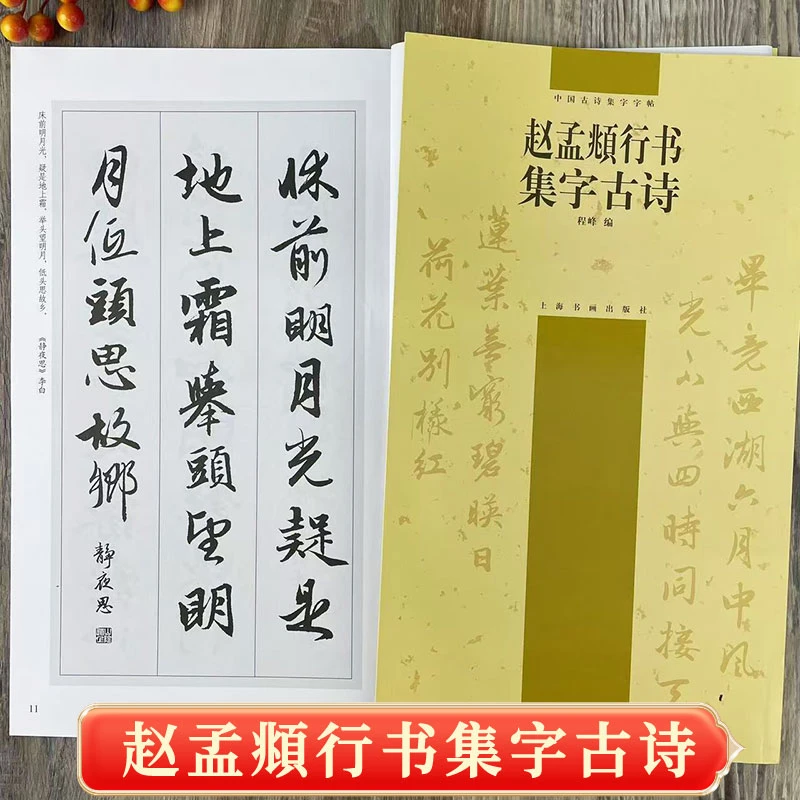 床前明月光，疑是地上霜。举头望明月，低头思故乡。
《静夜思》李白
牀前明月光疑是
地上霜舉頭望明
月低頭思故鄉
靜夜思
11
中国古诗集字字帖
赵孟頫行书
集字古诗
程峰 编
上海书画出版社
畢竟西湖六月中風
光不與四時同接天
蓮葉無窮碧暎日
荷花別樣紅
赵孟頫行书集字古诗